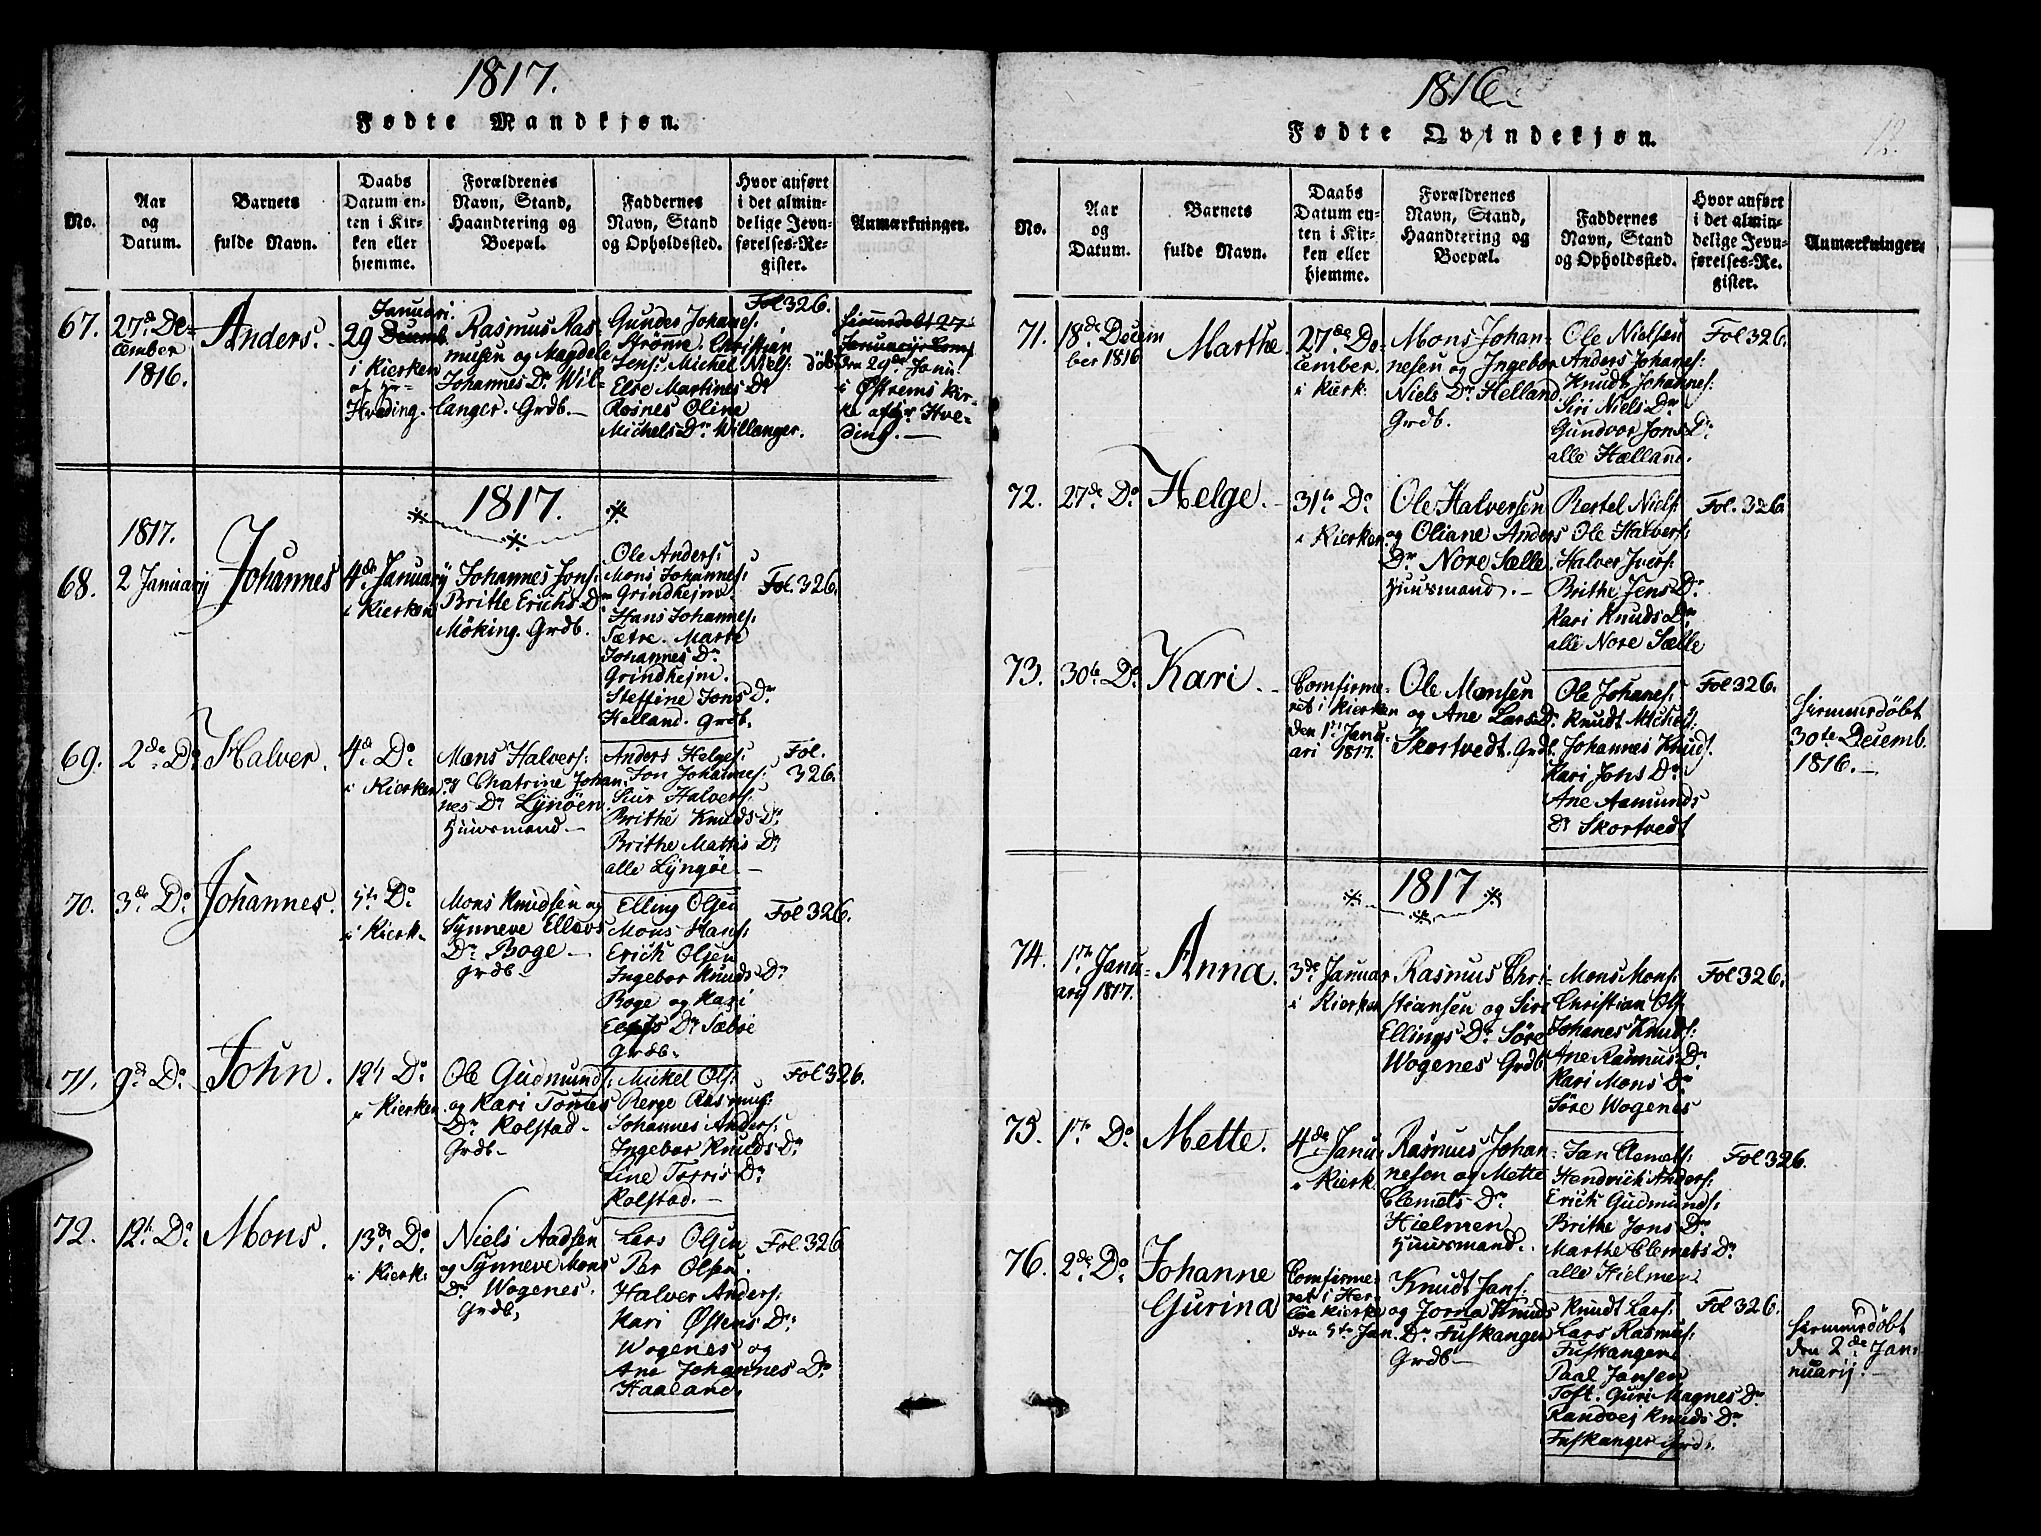 1817.
Fødte Mandkjøn.
No.
Aar
og
Datum.
Barnets
fulde Navn.
Daabs
Datum en-
ten i Kir-
ken eller
hjemme.
Forældrenes
Navn, Stand,
Haandtering og
Boepæl.
Faddernes
Navn, Stand
og Opholdssted.
Hvor anført
i det almin-
delige Jevn-
førelses-Re-
gister.
Anmærkninger.
67.
27de De-
cember
1816.
Anders.
Januari.
29 Decemb.
i Kierken
af Hr
Hveding.
Rasmus Ras
musen og Magdele
Johannes Dr Wil-
langer. Grdb.
Gunder Johanes:
Strømø Christian
Jens: Michel Niels:
Else Martines Dr
Røsnes Oline
Michels Dr Willanger.
Fol 326.
den 29de Janu
i Østrems Kir-
ke af Hr Hve-
ding.
1817.
1817.
68.
2 January
Johannes
4de January
i Kierken
Johannes Jons:
Britte Erichs Dr
Möking. Grdb.
Ole Anders:
Mons Johannes:
Grindhejm
Hans Johannes:
Sætre. Marte
Johannes Dr
Grindhejm.
Steffine Jons Dr
Helland. Grdb.
Fol. 326.
69.
2de Do
Halver.
4de Do
i Kierken
Mons Halvers:
og Chatrine Johan
nes Dr Lynöen
Huusmand
Anders Helges:
Jon Johannes:
Siur Halvers:
Brithe Knuds Dr
Brithe Mattis Dr
alle Lyngöe
Fol.
326.
70.
3de Do
Johannes.
5te Do
i Kierk.
Mons Knudsen og
Synneve Ellevs
Dr Boge
Grdb
Elling Olsen
Mons Hans:
Erich Olsen
Ingebor Knuds Dr
Boge og Kari
Dr Sæbøe
Grdb.
Fol 326.
71.
9de Do
John.
12t Do
i Kierken
Ole Gudmunds:
og Kari Tomes
Dr Kolstad
Grdb
Mickel Ols:
Berge Rasmus:
Johannes Anders:
Ingebor Knuds Dr
Line Torris Dr
Kolstad.
Fol 326.
72.
12t Do
Mons.
13de Do
i Kierk:
Niels Aadsen
og Synneve Mons
Dr Wogenes.
Grdb.
Lars Olsen
Per Olsen
Halver Anders:
Kari Østens Dr
Wogenes og
Ane Johannes Dr
Haaland.
Fol. 326
1816.
Fødte Qvindekjøn.
12.
No.
Aar
og
Datum.
Barnets
fulde Navn.
Daabs
Datum en-
ten i Kir-
ken eller
hjemme.
Forældrenes
Navn, Stand,
Haandtering og
Boepæl.
Faddernes
Navn, Stand
og Opholdssted.
Hvor anført
i det almin-
delige Jevn-
førelses-Re-
gister.
Anmærkninger.
71.
18de Decem
ber 1816
Marthe
27de De-
cember.
i Kierk.
Mons Johan-
nesen og Ingebor
Niels Dr Helland
Grdb.
Ole Nielsen
Anders Johanes:
Knudt Johannes:
Siri Niels Dr
Gundvor Jons Dr
alle Hælland.
Fol 326.
72.
27de Do
Helge.
31te Do
i Kierken
Ole Halversen
og Oliane Anders
Dr Nore Sælle
Huusmand.
Bertel Niels:
Ole Halvers:
Halver Ivers:
Brithe Jens Dr
Kari Knuds Dr
alle Nore Sælle
Fol. 326
73.
30te Do
Kari.
Comfirme-
ret i Kierken
den 1te Janu-
ari 1817.
Ole Monsen
og Ane Lars Dr
Skortvedt Grdb.
Ole Johanes:
Knudt Michel:
Johannes Knuds.
Kari Jons Dr
Ane Aamunds
Dr Skortvedt
Fol 326.
Hiemmedöbt
30te Decemb.
1816.
1817
74.
1te Janu-
ary 1817.
Anna.
3de Januar
i Kierken
Rasmus Chri-
stiansen og Siri
Ellings Dr Söre
Wogenes Grdb
Mons Mons:
Christian Ols:
Johanes Knuds:
Ane Rasmus Dr
Kari Mons Dr
Söre Wogenes
Fol 326.
75.
1te Do
Mette.
4de Janu:
i Kierk.
Rasmus Johan-
nesen og Mette
Clemets Dr
Hielmen
Huusmand.
Jan Clemets:
Hendrich Anders:
Erich Gudmunds:
Brithe Jons Dr
Marthe Clemets Dr
alle Hielmen
Fol 326.
76.
2de Do
Johanne
Gurina
Comfirme-
ret i Her-
löe Kierke
den 5te Jan.
Knudt Jans:
og Jorna Knuds
Dr Fuskanger
Grdb
Knudt Lars:
Lars Rasmus:
Fuskanger
Paal Jansen
Toft. Guri Magnes Dr
Randvej Knuds Dr
Fuskanger Grdb.
Fol 326.
Hiemmedöbt
den 2de Jan-
nuarij.